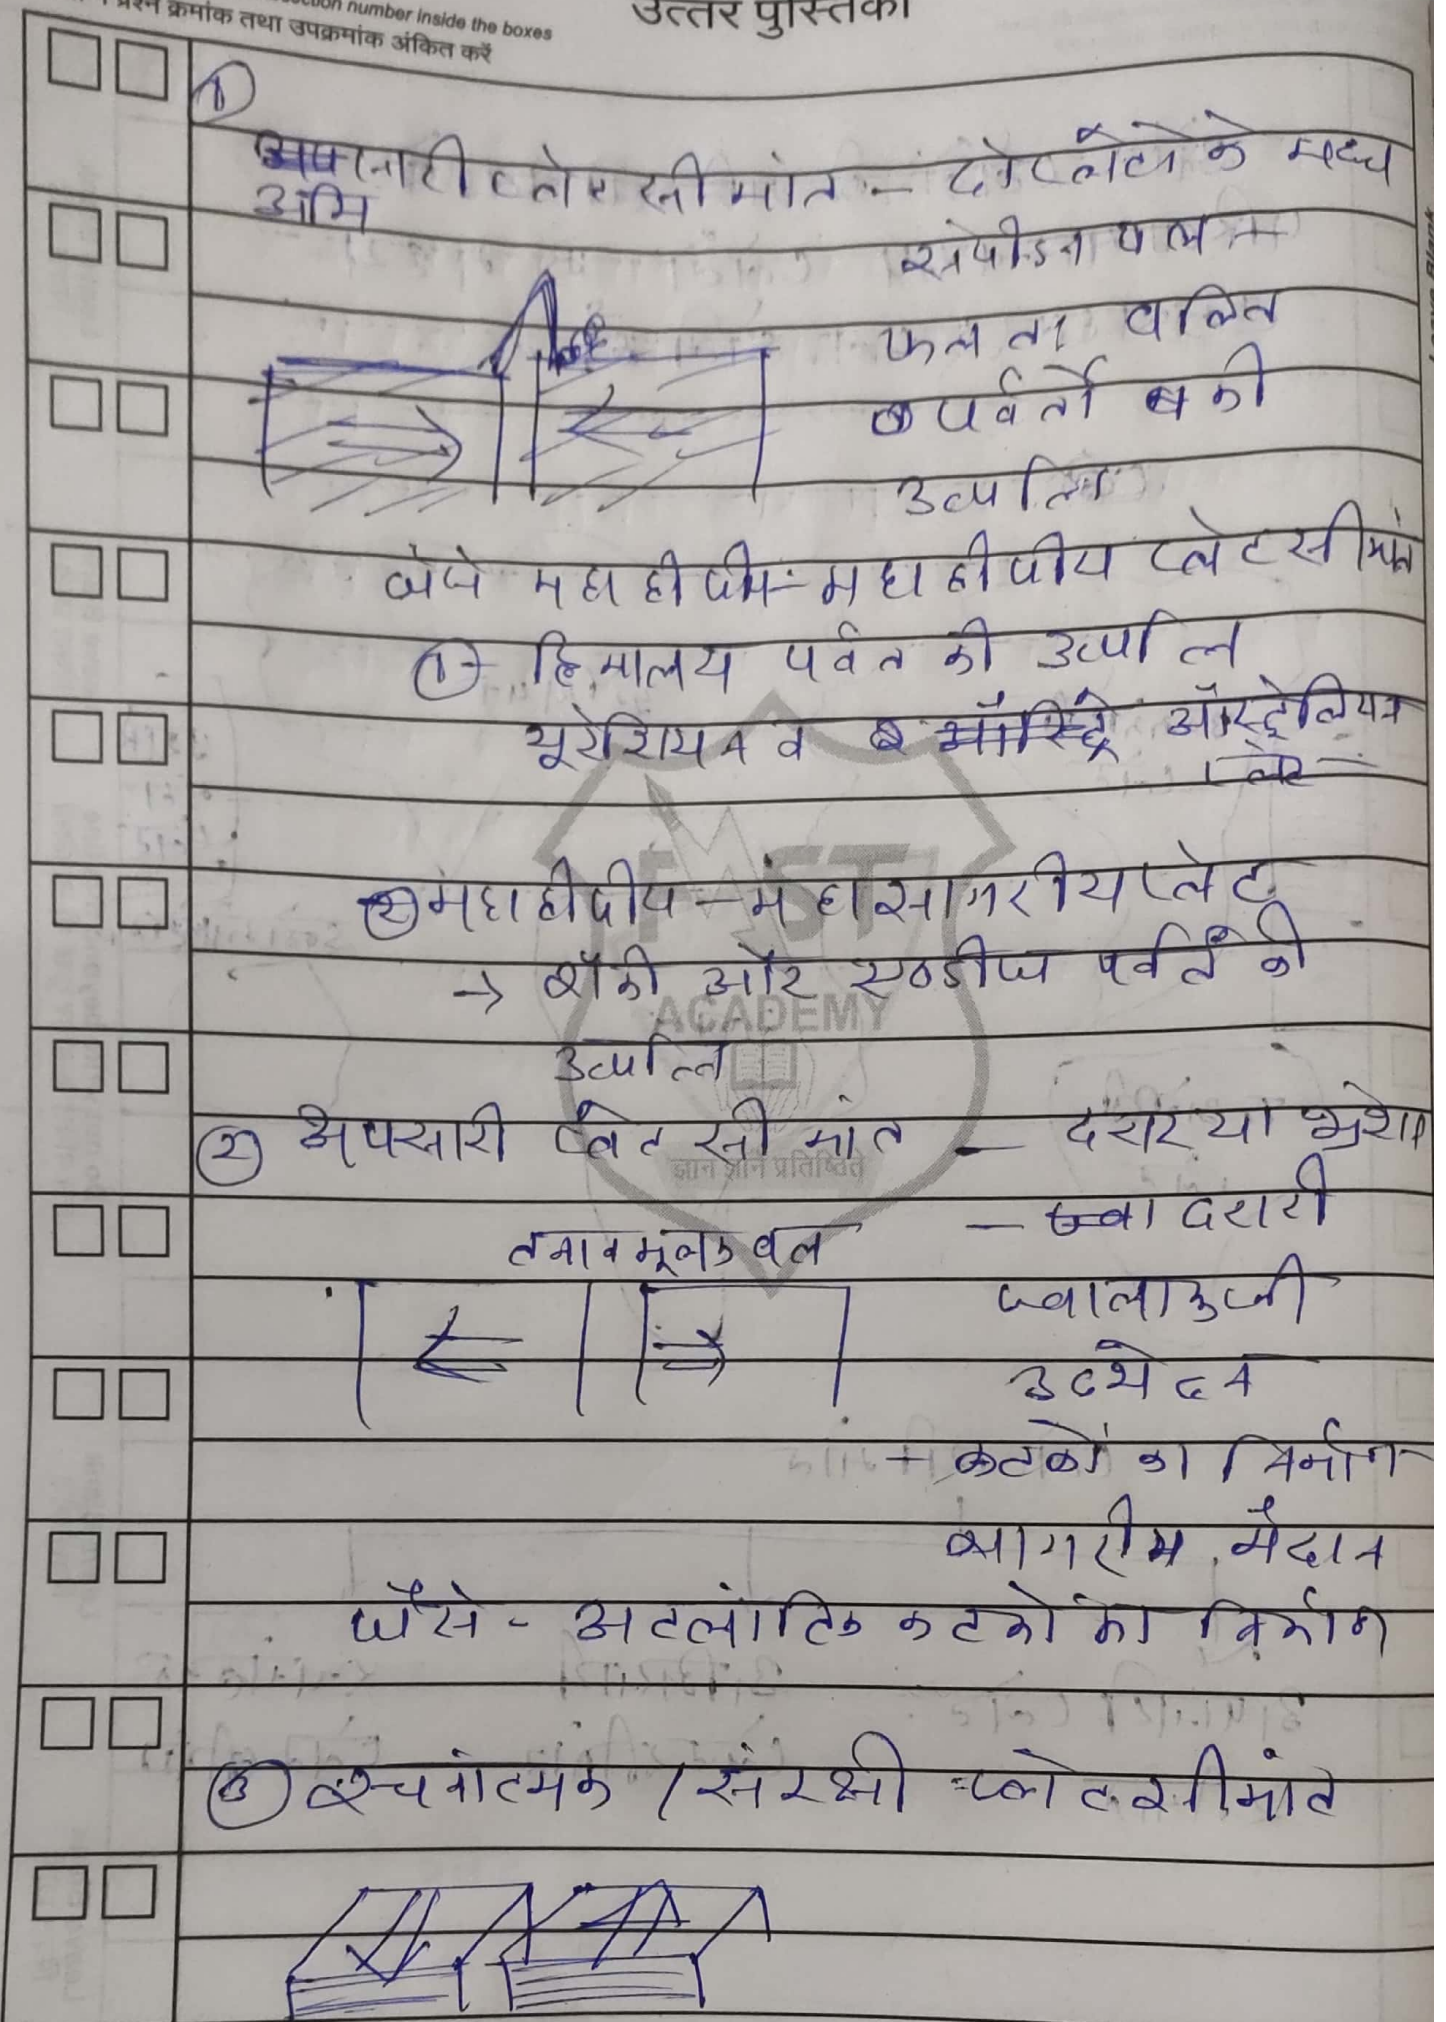 उत्तर पुस्तिका
number inside the boxes
प्रश्न क्रमांक तथा उपक्रमांक अंकित करें
①
अभिसारी प्लेट सीमांत - दो प्लेटों के मध्य
संपीडनात्मक
फलतः वलित
पर्वतों की
उत्पत्ति
जैसे महाद्वीपीय - महाद्वीपीय प्लेट सीमांत
① - हिमालय पर्वत की उत्पत्ति
यूरेशियन व ऑस्ट्रेलियन
प्लेट
② महाद्वीपीय - महासागरीय प्लेट
→ रॉकी और एण्डीज पर्वत की
उत्पत्ति
FAST
ACADEMY
② अपसारी प्लेट सीमांत - दरार या भ्रंश
ज्ञान ज्ञाने प्रतिष्ठितं
- दरारी
तनावमूलक बल
ज्वालामुखी
उदभेदन
- कटकों का निर्माण
सागरीय मैदान
जैसे - अटलांटिक कटको का निर्माण
③ / संरक्षी प्लेट सीमांत